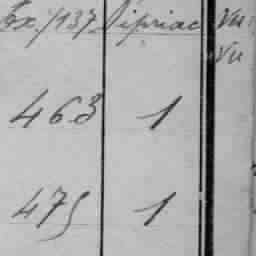 Ex. 1137 Sipriac Vu
Vu
463 1
475 1